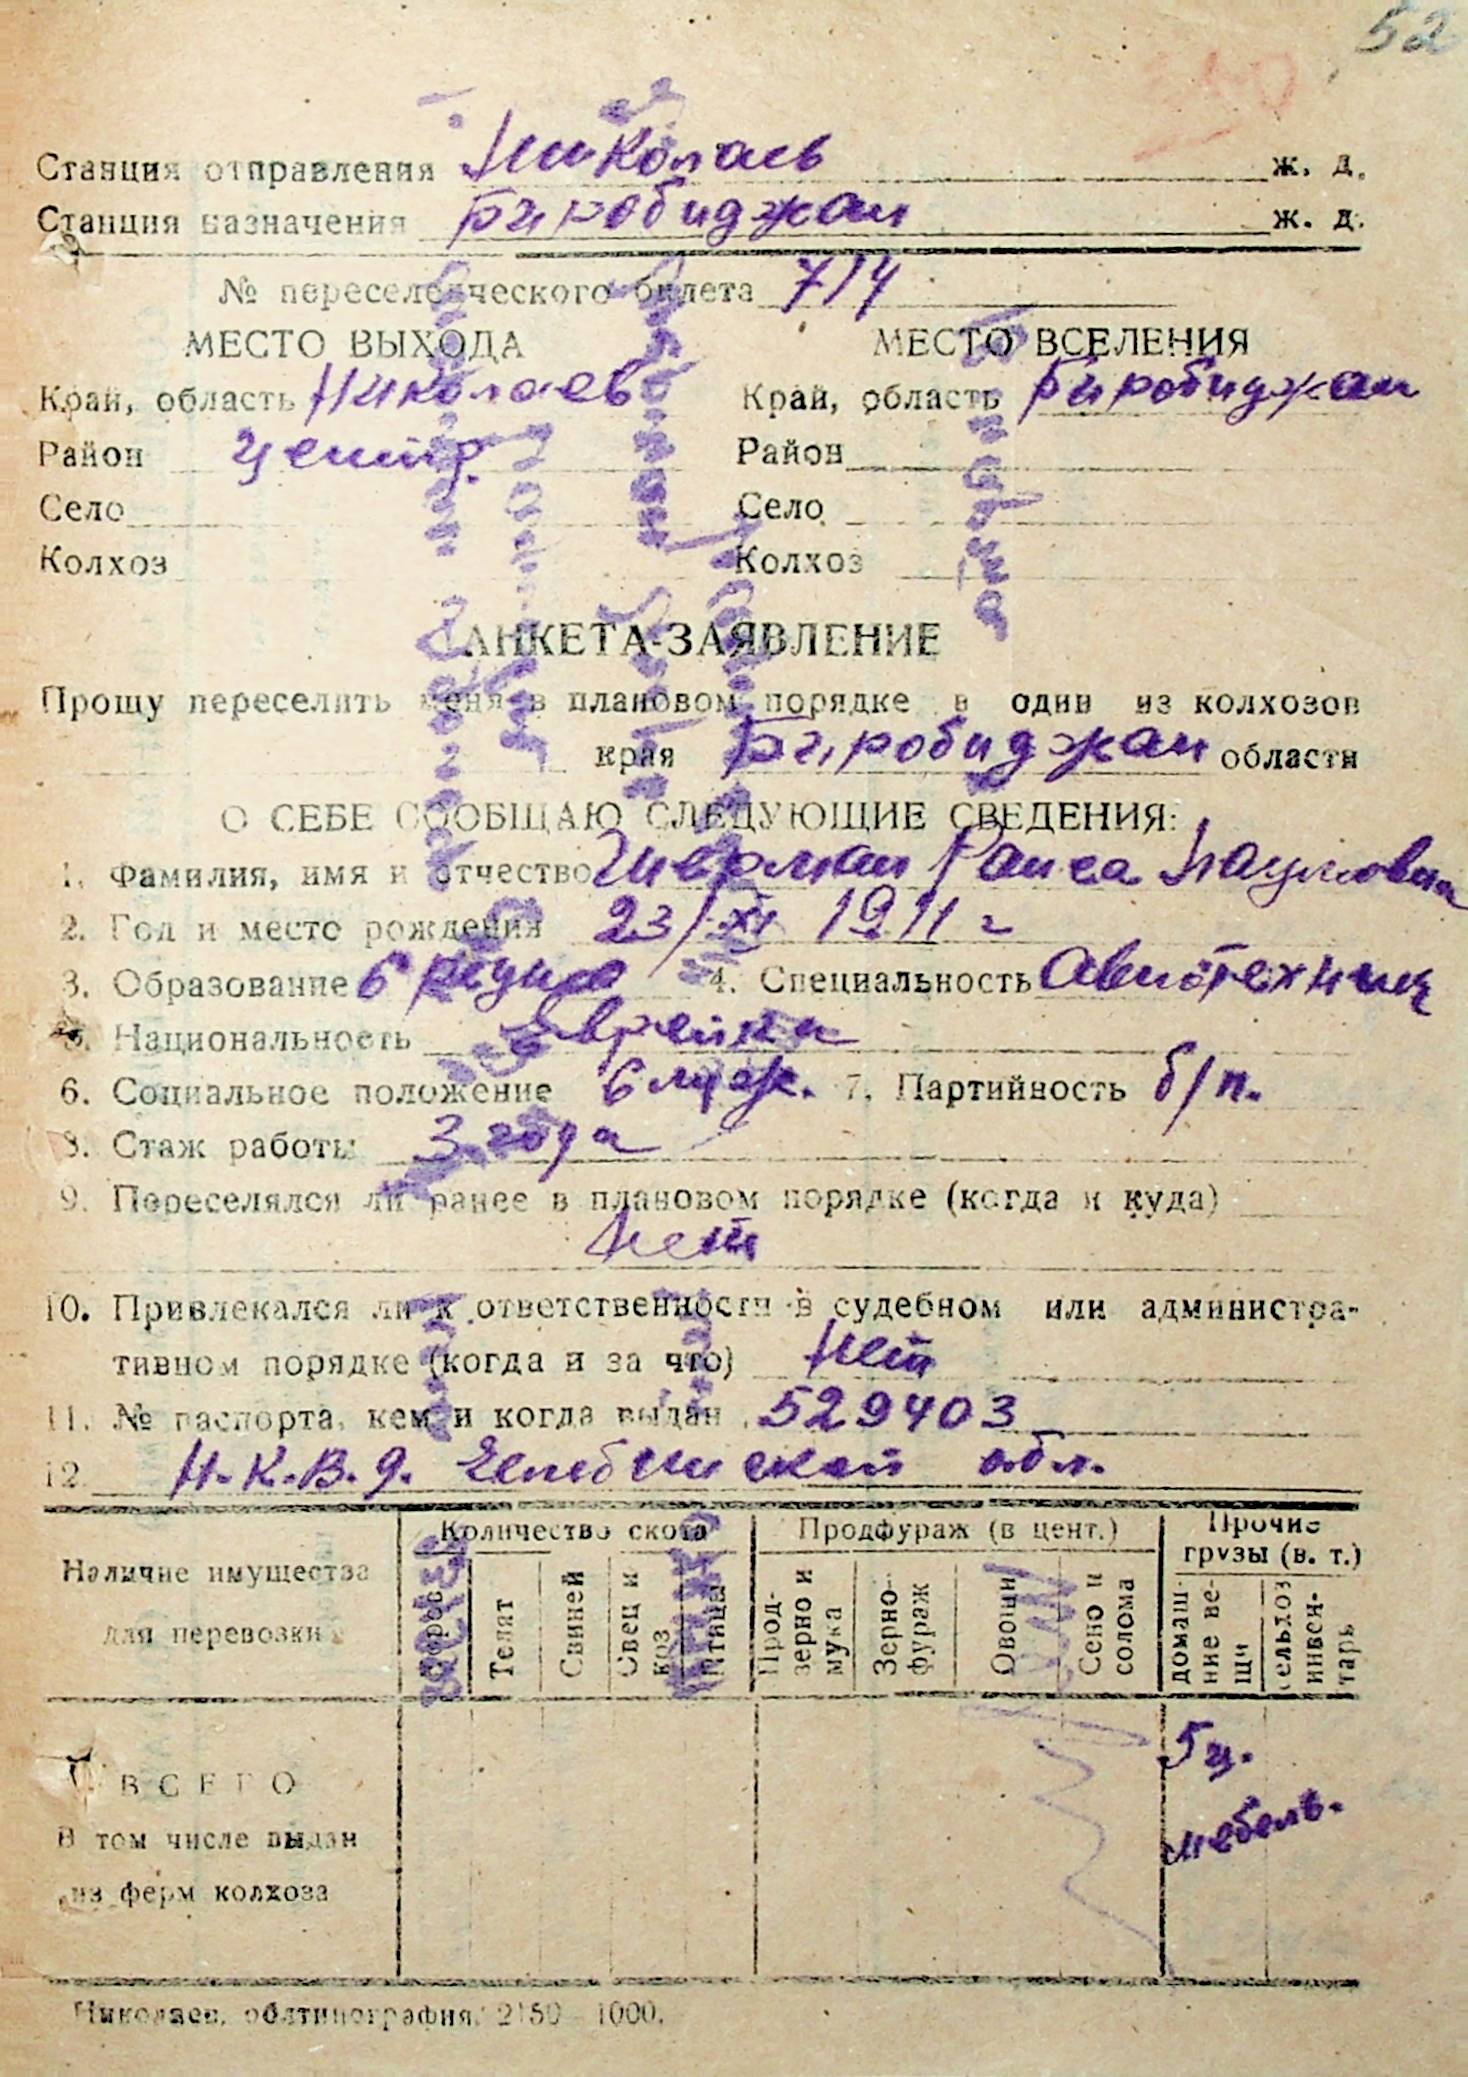 52
Станция отправления Николаев ж. д.
Станция назначения Биробиджан ж. д.
№ переселенческого билета 714
МЕСТО ВЫХОДА
МЕСТО ВСЕЛЕНИЯ
Край, область Николаев
Край, область Биробиджан
Район центр.
Район
Село
Село
Колхоз
Колхоз
АНКЕТА-ЗАЯВЛЕНИЕ
Прошу переселить меня в плановом порядке в один из колхозов
края Биробиджан области
О СЕБЕ СООБЩАЮ СЛЕДУЮЩИЕ СВЕДЕНИЯ:
1. Фамилия, имя и отчество Раиса Наумовна
2. Год и место рождения 23/XI 1911 г
3. Образование средне 4. Специальность Авиотехник
5. Национальность Еврейка
6. Социальное положение служ. 7. Партийность б/п.
8. Стаж работы 3 года
9. Переселялся ли ранее в плановом порядке (когда и куда)
Нет
10. Привлекался ли к ответственности в судебном или администра-
тивном порядке (когда и за что) Нет
11. № паспорта, кем и когда выдан 529403
12. Н.К.В.Д. Челябинской обл.
Наличие имущества
для перевозки
Количество скота
Продфураж (в цент.)
Прочие
грузы (в. т.)
коров
Телят
Свиней
Овец и
коз
Птицы
Прод-
зерно и
мука
Зерно-
фураж
Овощи
Сено и
солома
домаш-
ние ве-
щи
сельхоз
инвен-
тарь
ВСЕГО
5 ц.
мебель.
В том числе выдан
из ферм колхоза
Николаев, облтипография. 2150—1000.